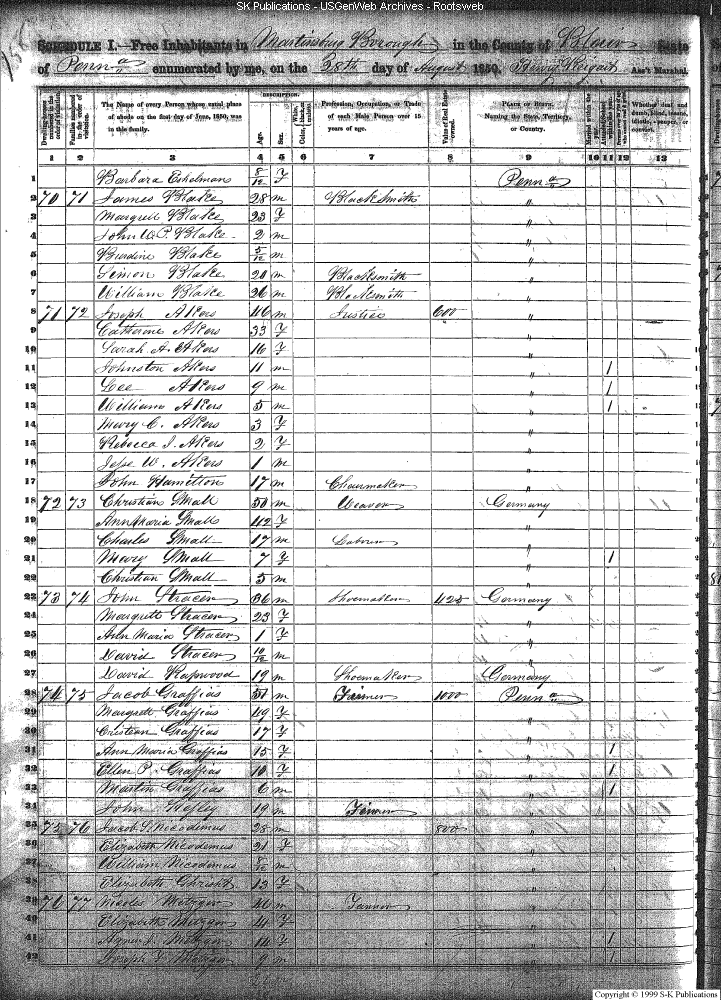 SK Publications - USGenWeb Archives - Rootsweb
SCHEDULE I.—Free Inhabitants in Martinsburg Borough in the County of Blair State
of Penna enumerated by me, on the 28th day of August 1850. Ass't Marshal.
DESCRIPTION.
The Name of every Person whose usual place of abode on the first day of June, 1850, was in this family. Age. Sex. Profession, Occupation, or Trade of each Male Person over 15 years of age. Value of Real Estate owned. PLACE OF BIRTH. Naming the State, Territory, or Country. Whether deaf and dumb, blind, insane, idiotic, pauper, or convict.
1 2 3 4 5 6 7 8 9 10 11 12 13
1 Barbara Eshelman 8/12 F Penna
2 70 71 James Blake 28 m Blacksmith "
3 Margrett Blake 23 F "
4 John W. P. Blake 2 m "
5 Blake 5/12 m "
6 Simon Blake 20 m Blacksmith "
7 William Blake 26 m Blacksmith "
8 71 72 Joseph Akers 46 m Justice 600 "
9 Catherine Akers 33 F "
10 Sarah A. Akers 16 F "
11 Johnston Akers 11 m " /
12 Lee Akers 9 m " /
13 William Akers 5 m " /
14 Mary C. Akers 3 F "
15 Rebecca J. Akers 2 F "
16 Jesse W. Akers 1 m "
17 John Hamilton 17 m Chairmaker "
18 72 73 Christian Small 50 m Weaver Germany
19 Ann Maria Small 42 F "
20 Charles Small 17 m Laborer "
21 Mary Small 7 F " /
22 Christian Small 5 m "
23 73 74 John Stracer 36 m Shoemaker 425 Germany
24 Margrett Stracer 23 F "
25 Ann Maria Stracer 1 F "
26 David Stracer 10/12 m "
27 David 19 m Shoemaker Germany
28 74 75 Jacob Graffias 51 m Farmer 1000 Penna
29 Margrett Graffias 49 F "
30 Cristian Graffias 17 F "
31 Ann Maria Graffias 15 F " /
32 Ellen P. Graffias 10 F " /
33 Martin Graffias 6 m " /
34 John 19 m "
35 75 76 Jacob S. Nicodemus 28 m 800 "
36 Elizabeth Nicodemus 21 F "
37 William Nicodemus 8/12 m "
38 Elizabeth 13 F "
39 76 77 Metzger 40 m Tanner "
40 Elizabeth Metzger F "
41 Metzger 14 F " /
42 Joseph Metzger 9 m " /
Copyright © 1999 S-K Publications